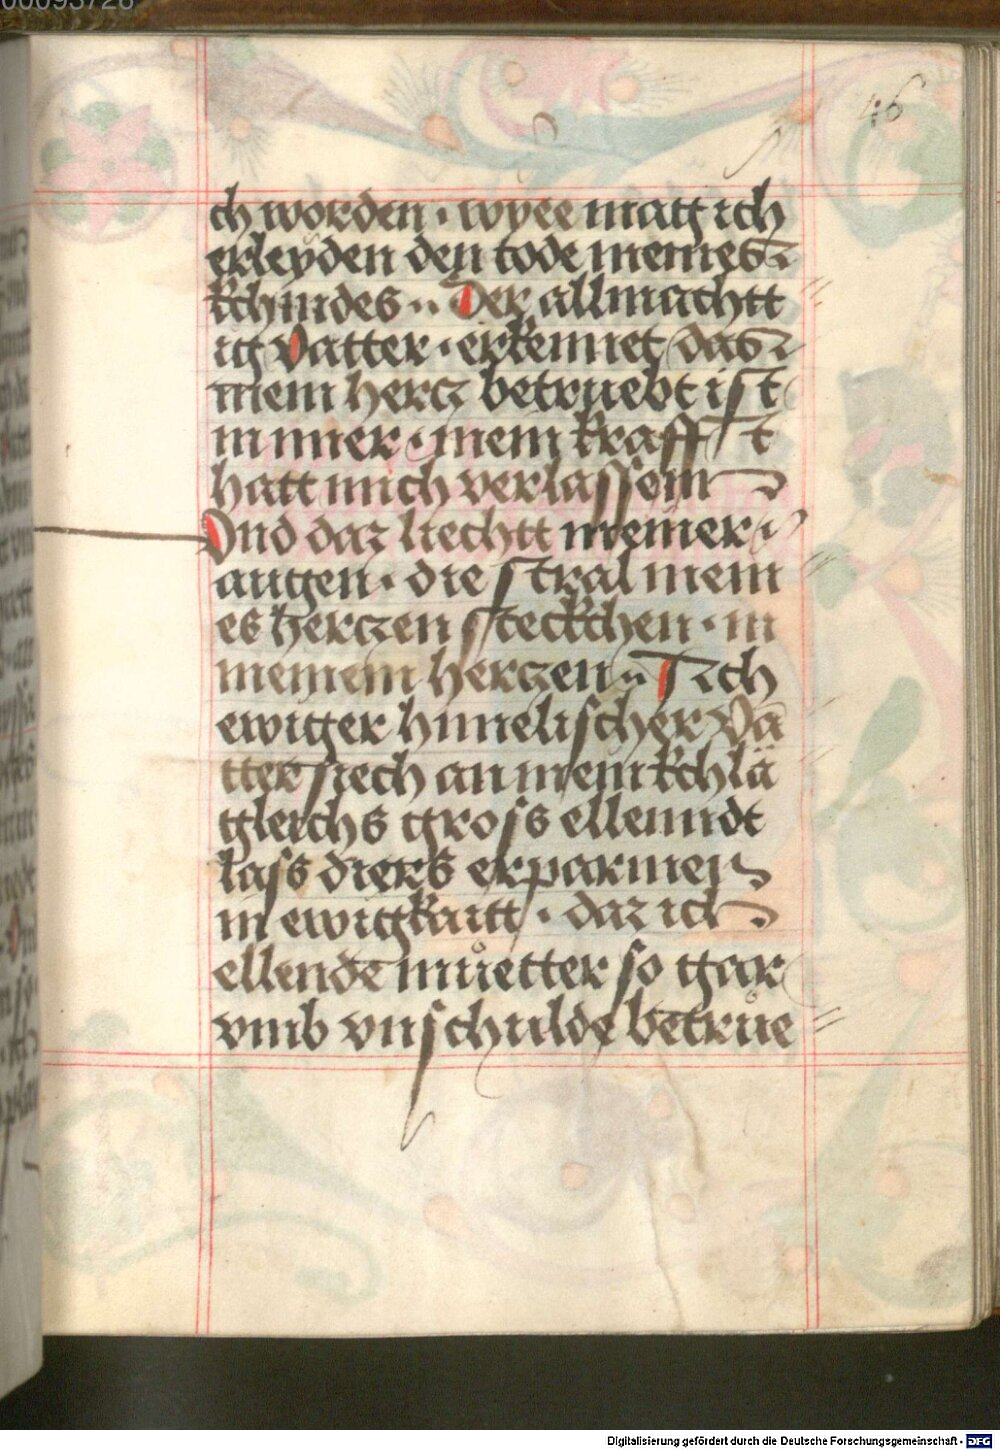 00093728
46
ch worden · wyee mag ich
erleyden den tode meines
kchindes ·· Der allmachtt
ig vatter · erkennet das
mein hercz betruebt ist
in mier · mein krafft
hatt mich verlassenn
Vnd daz liechtt meiner
augen · die stral mein
es herczen steckchen · in
meinem herczen ·· Ach
ewiger himelischer Va
tter siech an mein kchlä
gleichs gross ellenndt
lass diers erparmen
in ewigkaitt · daz ich
ellende můetter so gar
vmb vnschulde betrůe
Digitalisierung gefördert durch die Deutsche Forschungsgemeinschaft - DFG